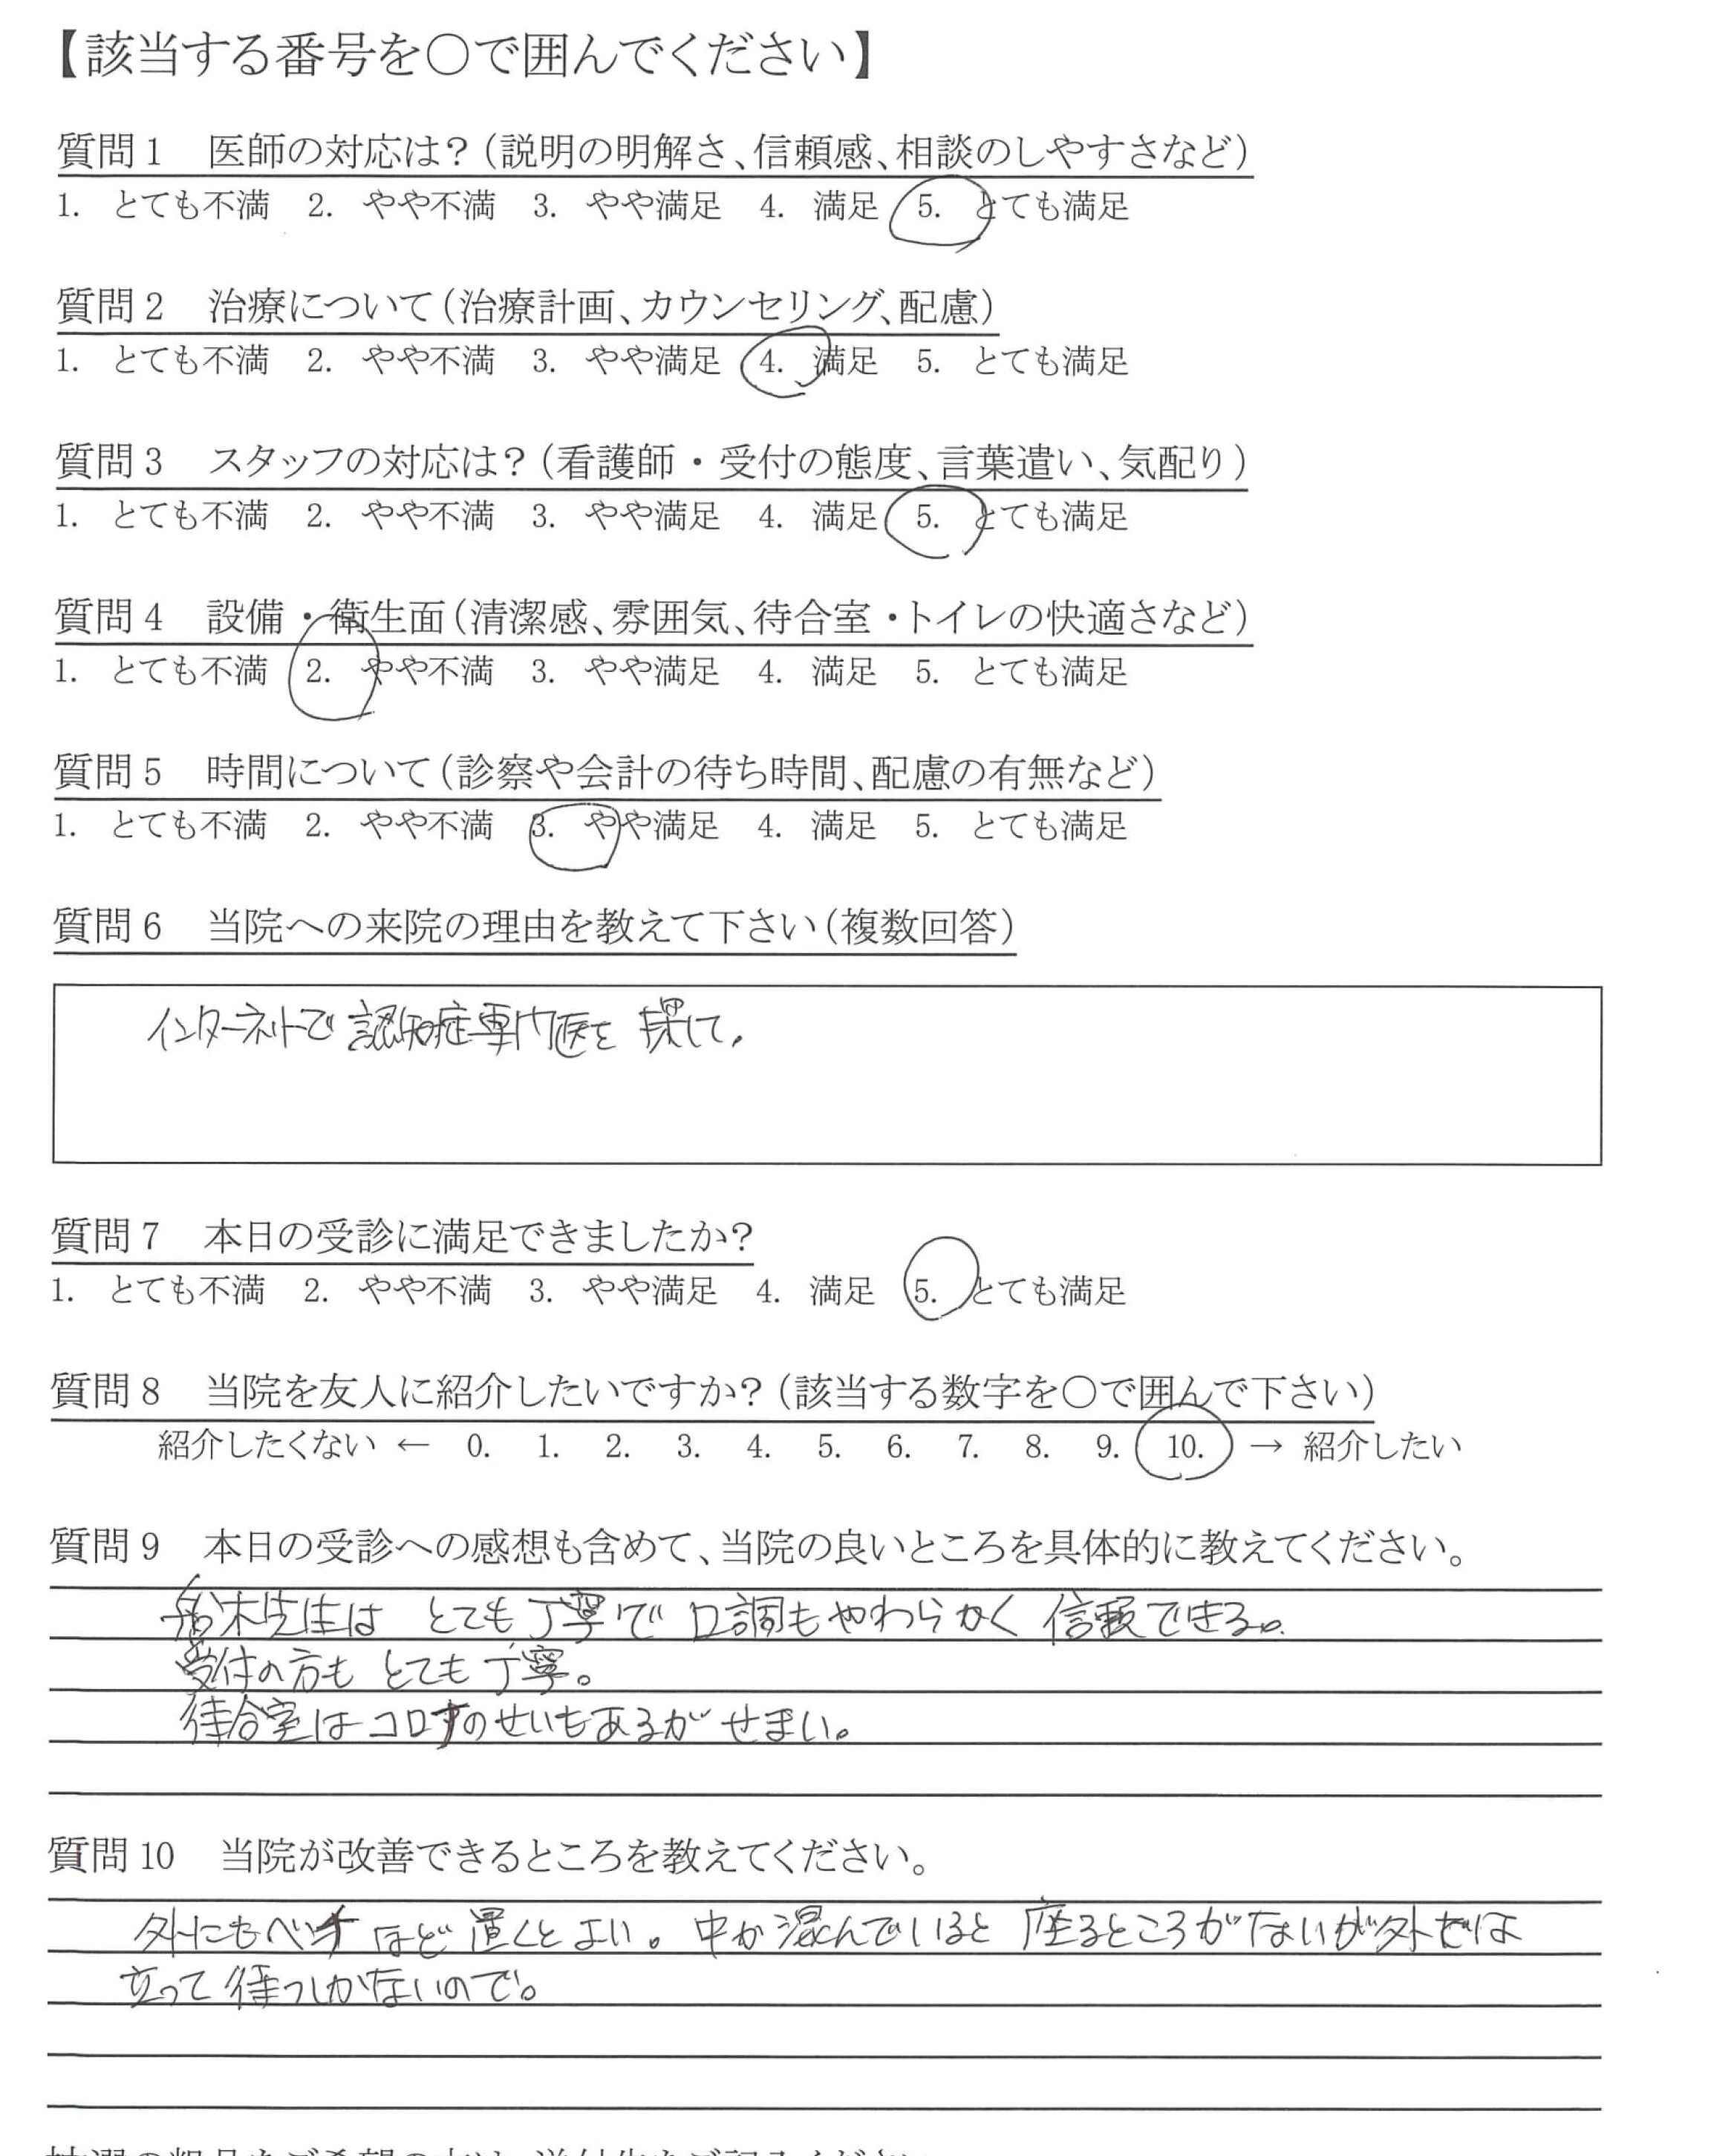 【該当する番号を○で囲んでください】
質問1 医師の対応は?(説明の明解さ、信頼感、相談のしやすさなど)
1. とても不満 2. やや不満 3. やや満足 4. 満足 5. とても満足
質問2 治療について(治療計画、カウンセリング、配慮)
1. とても不満 2. やや不満 3. やや満足 4. 満足 5. とても満足
質問3 スタッフの対応は?(看護師・受付の態度、言葉遣い、気配り)
1. とても不満 2. やや不満 3. やや満足 4. 満足 5. とても満足
質問4 設備・衛生面(清潔感、雰囲気、待合室・トイレの快適さなど)
1. とても不満 2. やや不満 3. やや満足 4. 満足 5. とても満足
質問5 時間について(診察や会計の待ち時間、配慮の有無など)
1. とても不満 2. やや不満 3. やや満足 4. 満足 5. とても満足
質問6 当院への来院の理由を教えて下さい(複数回答)
インターネットで認知症専門医を探して.
質問7 本日の受診に満足できましたか?
1. とても不満 2. やや不満 3. やや満足 4. 満足 5. とても満足
質問8 当院を友人に紹介したいですか?(該当する数字を○で囲んで下さい)
紹介したくない ← 0. 1. 2. 3. 4. 5. 6. 7. 8. 9. 10. → 紹介したい
質問9 本日の受診への感想も含めて、当院の良いところを具体的に教えてください。
船木先生は とても丁寧で 口調もやわらかく 信頼できる。
受付の方も とても丁寧。
待合室はコロナのせいもあるが せまい。
質問10 当院が改善できるところを教えてください。
外にもベンチほど置くとよい。中が混んでいると 座るところがないが外では
立って待つしかないので。